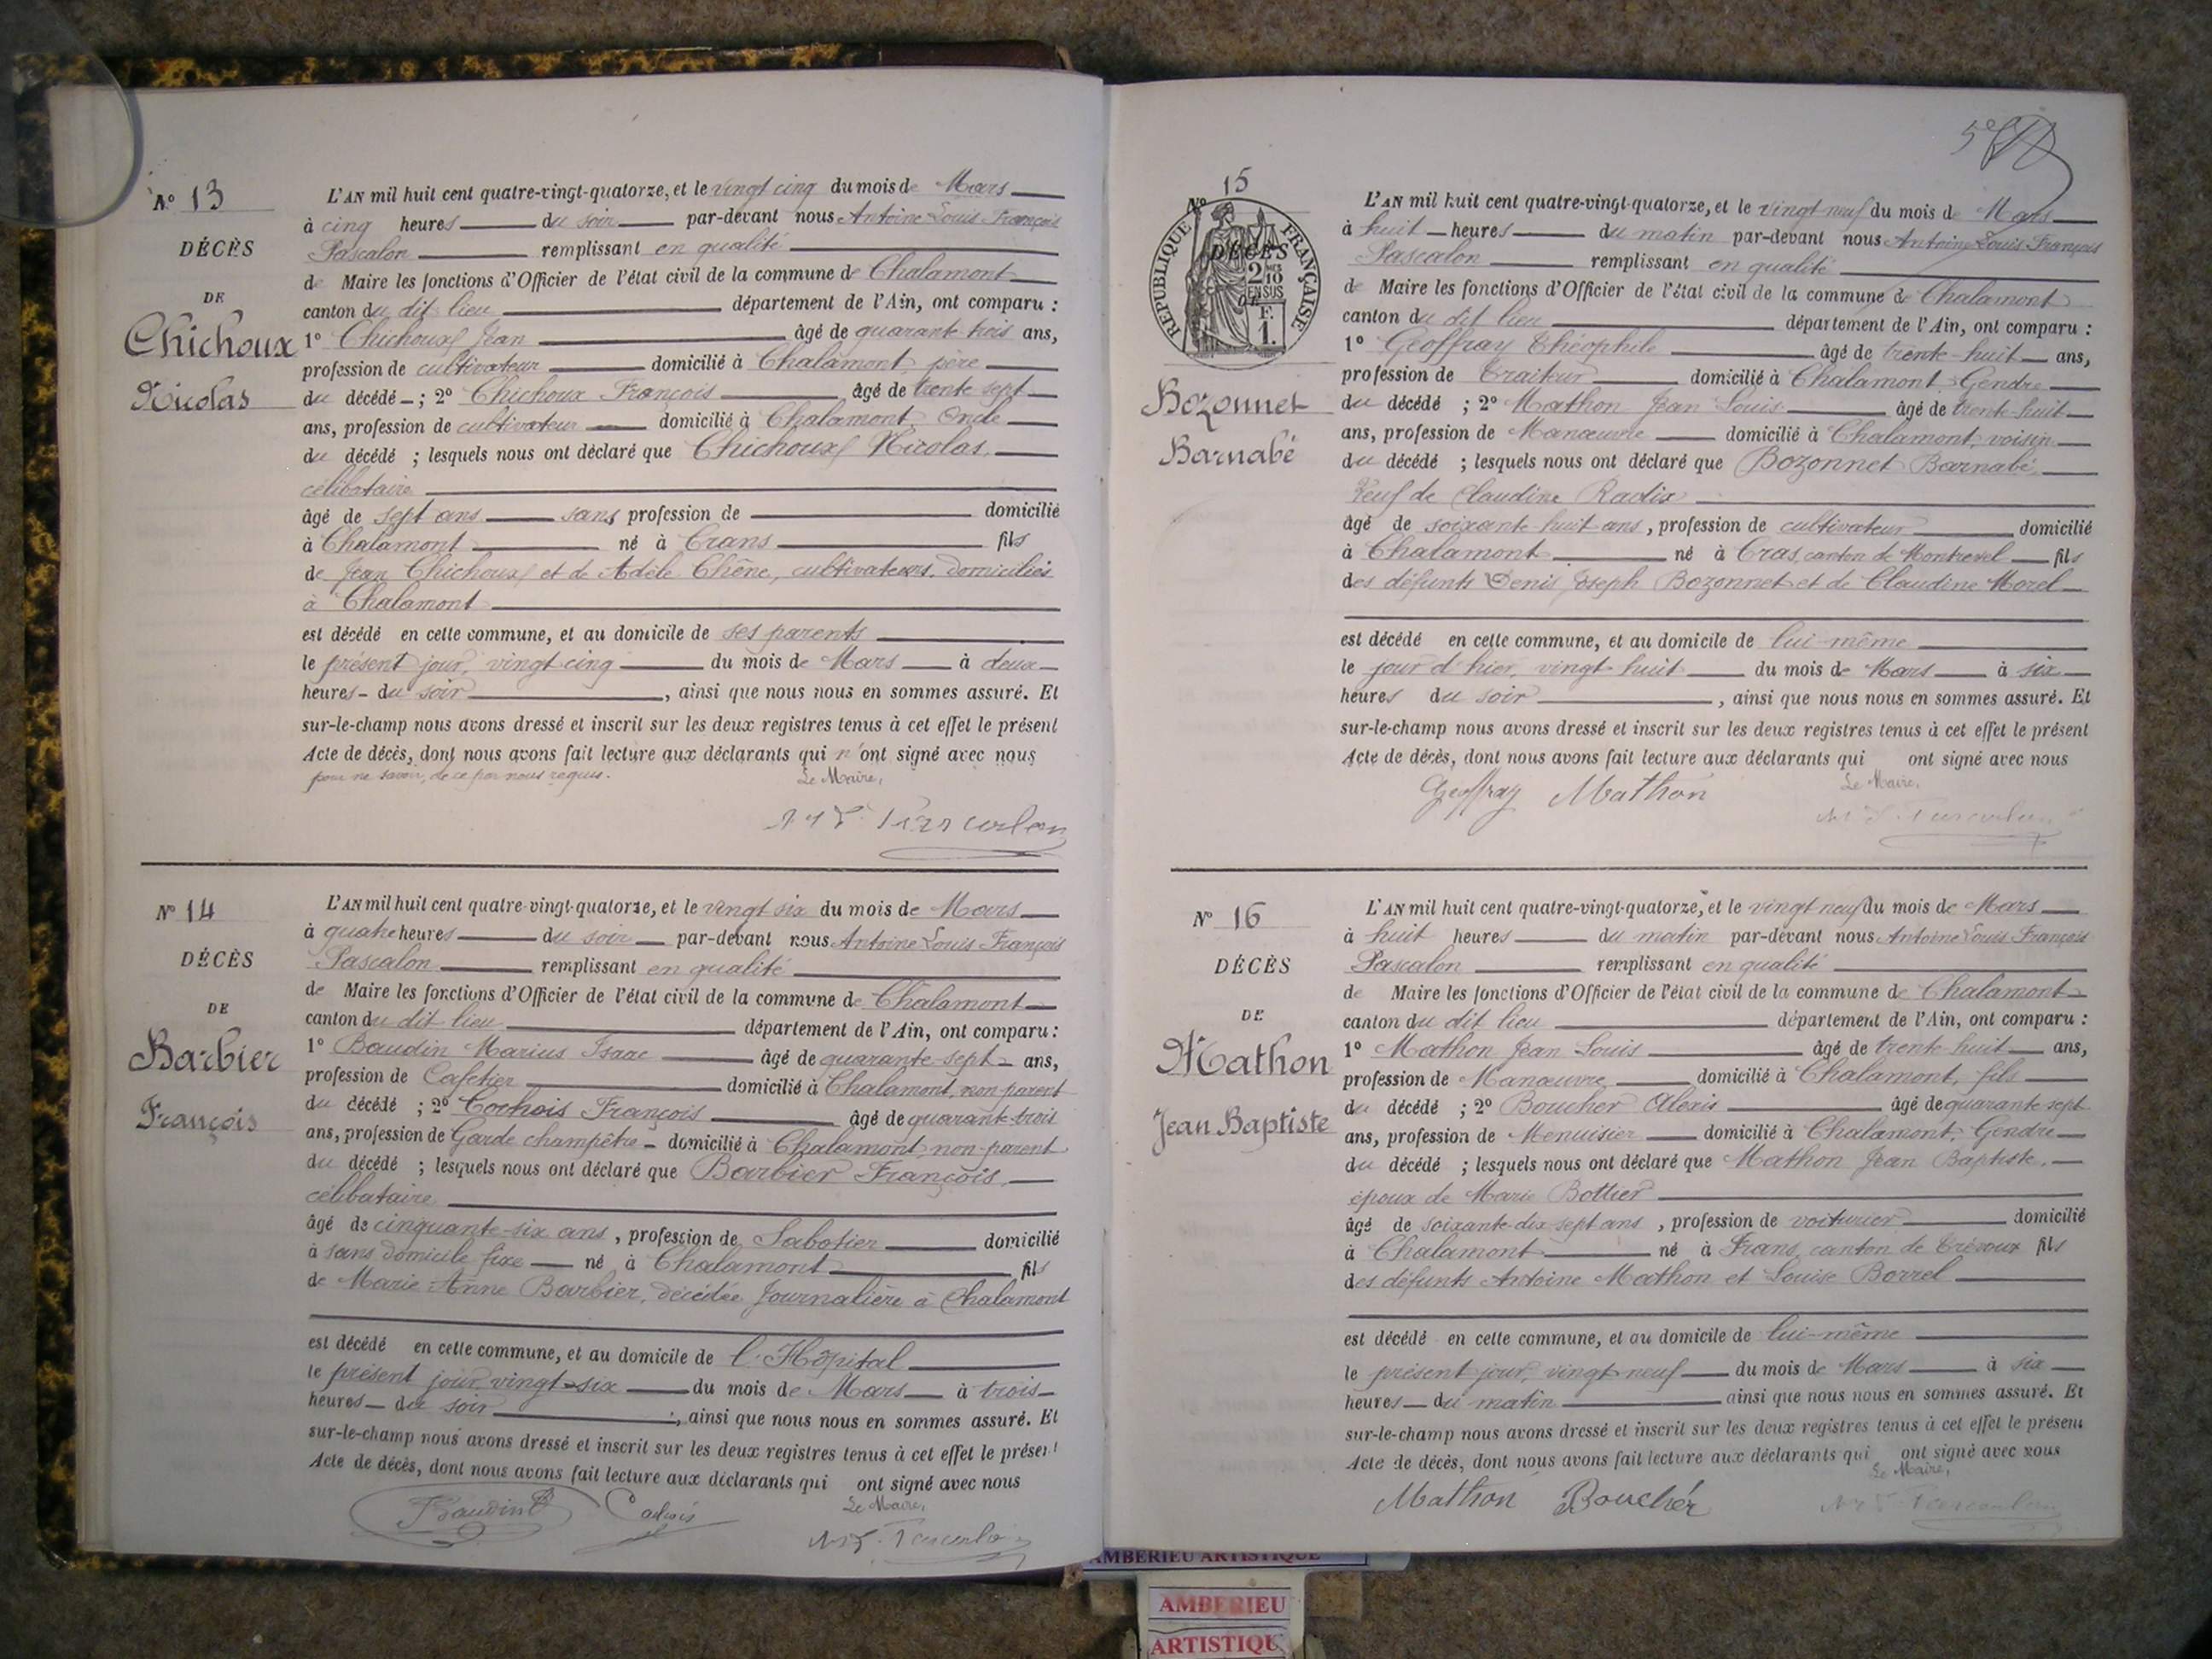 N° 13
DÉCÈS
DE
Chichoux
Nicolas
L'AN mil huit cent quatre-vingt-quatorze, et le vingt cinq du mois de Mars
à cinq heures du soir par-devant nous Antoine Louis François
Pascalon remplissant en qualité
de Maire les fonctions d'Officier de l'état civil de la commune de Chalamont
canton du dit lieu département de l'Ain, ont comparu :
1° Chichoux Jean âgé de quarante trois ans,
profession de cultivateur domicilié à Chalamont, père
du décédé ; 2° Chichoux François âgé de trente sept
ans, profession de cultivateur domicilié à Chalamont Oncle
du décédé ; lesquels nous ont déclaré que Chichoux Nicolas,
célibataire
âgé de sept ans sans profession de domicilié
à Chalamont né à Crans fils
de Jean Chichoux et de Adèle Chêne, cultivateurs, domiciliés
à Chalamont
est décédé en cette commune, et au domicile de ses parents
le présent jour, vingt cinq du mois de Mars à deux
heures du soir , ainsi que nous nous en sommes assuré. Et
sur-le-champ nous avons dressé et inscrit sur les deux registres tenus à cet effet le présent
Acte de décès, dont nous avons fait lecture aux déclarants qui n'ont signé avec nous
pour ne savoir, de ce par nous requis.
Le Maire,
N° 14
DÉCÈS
DE
Barbier
François
L'AN mil huit cent quatre-vingt-quatorze, et le vingt six du mois de Mars
à quatre heures du soir par-devant nous Antoine Louis François
Pascalon remplissant en qualité
de Maire les fonctions d'Officier de l'état civil de la commune de Chalamont
canton du dit lieu département de l'Ain, ont comparu :
1° Baudin Marius Isaac âgé de quarante-sept ans,
profession de Cafetier domicilié à Chalamont, non parent
du décédé ; 2° Cochois François âgé de quarante-trois
ans, profession de Garde champêtre domicilié à Chalamont, non-parent
du décédé ; lesquels nous ont déclaré que Barbier François,
célibataire
âgé de cinquante-six ans , profession de Sabotier domicilié
à sans domicile fixe né à Chalamont fils
de Marie Anne Barbier, décédée Journalière à Chalamont
est décédé en cette commune, et au domicile de l'Hôpital
le présent jour, vingt-six du mois de Mars à trois
heures du soir , ainsi que nous nous en sommes assuré. Et
sur-le-champ nous avons dressé et inscrit sur les deux registres tenus à cet effet le présent
Acte de décès, dont nous avons fait lecture aux déclarants qui ont signé avec nous
Le Maire,
Baudin
15
N°
RÉPUBLIQUE FRANÇAISE
DÉCÈS
2/10 EN SUS
F.
1.
Bozonnet
Barnabé
L'AN mil huit cent quatre-vingt-quatorze, et le vingt-neuf du mois de Mars
à huit heures du matin par-devant nous Antoine Louis François
Pascalon remplissant en qualité
de Maire les fonctions d'Officier de l'état civil de la commune de Chalamont
canton du dit lieu département de l'Ain, ont comparu :
1° Geoffray Théophile âgé de trente-huit ans,
profession de Traiteur domicilié à Chalamont, Gendre
du décédé ; 2° Mathon Jean Louis âgé de trente-huit
ans, profession de Manœuvre domicilié à Chalamont, voisin
du décédé ; lesquels nous ont déclaré que Bozonnet Barnabé,
Veuf de Claudine Radix
âgé de soixante huit ans, profession de cultivateur domicilié
à Chalamont né à Cras, canton de Montrevel fils
des défunts Denis Joseph Bozonnet et de Claudine Morel
est décédé en cette commune, et au domicile de lui-même
le jour d'hier, vingt-huit du mois de Mars à six
heures du soir , ainsi que nous nous en sommes assuré. Et
sur-le-champ nous avons dressé et inscrit sur les deux registres tenus à cet effet le présent
Acte de décès, dont nous avons fait lecture aux déclarants qui ont signé avec nous
Le Maire,
Geoffray Mathon
N° 16
DÉCÈS
DE
Mathon
Jean Baptiste
L'AN mil huit cent quatre-vingt-quatorze, et le vingt neuf du mois de Mars
à huit heures du matin par-devant nous Antoine Louis François
Pascalon remplissant en qualité
de Maire les fonctions d'Officier de l'état civil de la commune de Chalamont
canton du dit lieu département de l'Ain, ont comparu :
1° Mathon Jean Louis âgé de trente huit ans,
profession de Manœuvre domicilié à Chalamont, fils
du décédé ; 2° Boucher Alexis âgé de quarante sept
ans, profession de Menuisier domicilié à Chalamont, Gendre
du décédé ; lesquels nous ont déclaré que Mathon Jean Baptiste,
époux de Marie Bottier
âgé de soixante-dix-sept ans , profession de voiturier domicilié
à Chalamont né à Frans, canton de Trévoux fils
des défunts Antoine Mathon et Louise Borrel
est décédé en cette commune, et au domicile de lui-même
le présent jour, vingt-neuf du mois de Mars à six
heures du matin ainsi que nous nous en sommes assuré. Et
sur-le-champ nous avons dressé et inscrit sur les deux registres tenus à cet effet le présent
Acte de décès, dont nous avons fait lecture aux déclarants qui ont signé avec nous
Le Maire,
Mathon Boucher
AMBERIEU ARTISTIQUE
AMBERIEU
ARTISTIQU